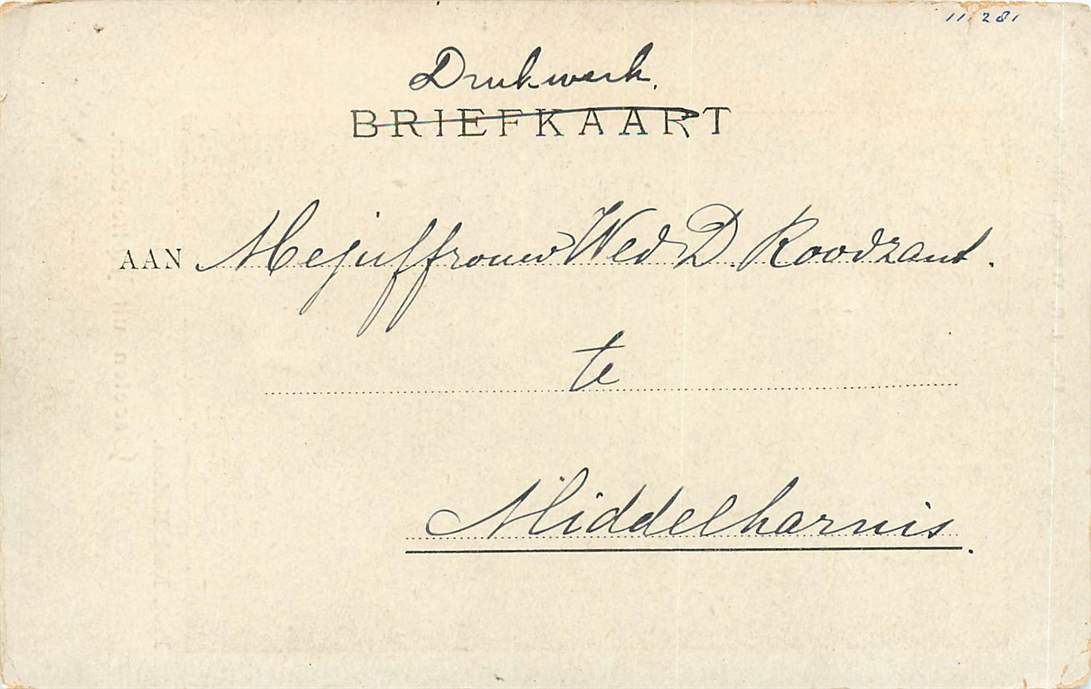 11 281
Drukwerk.
BRIEFKAART
AAN Mejuffrouw Wed D. Roodzant.
te
Middelharnis.